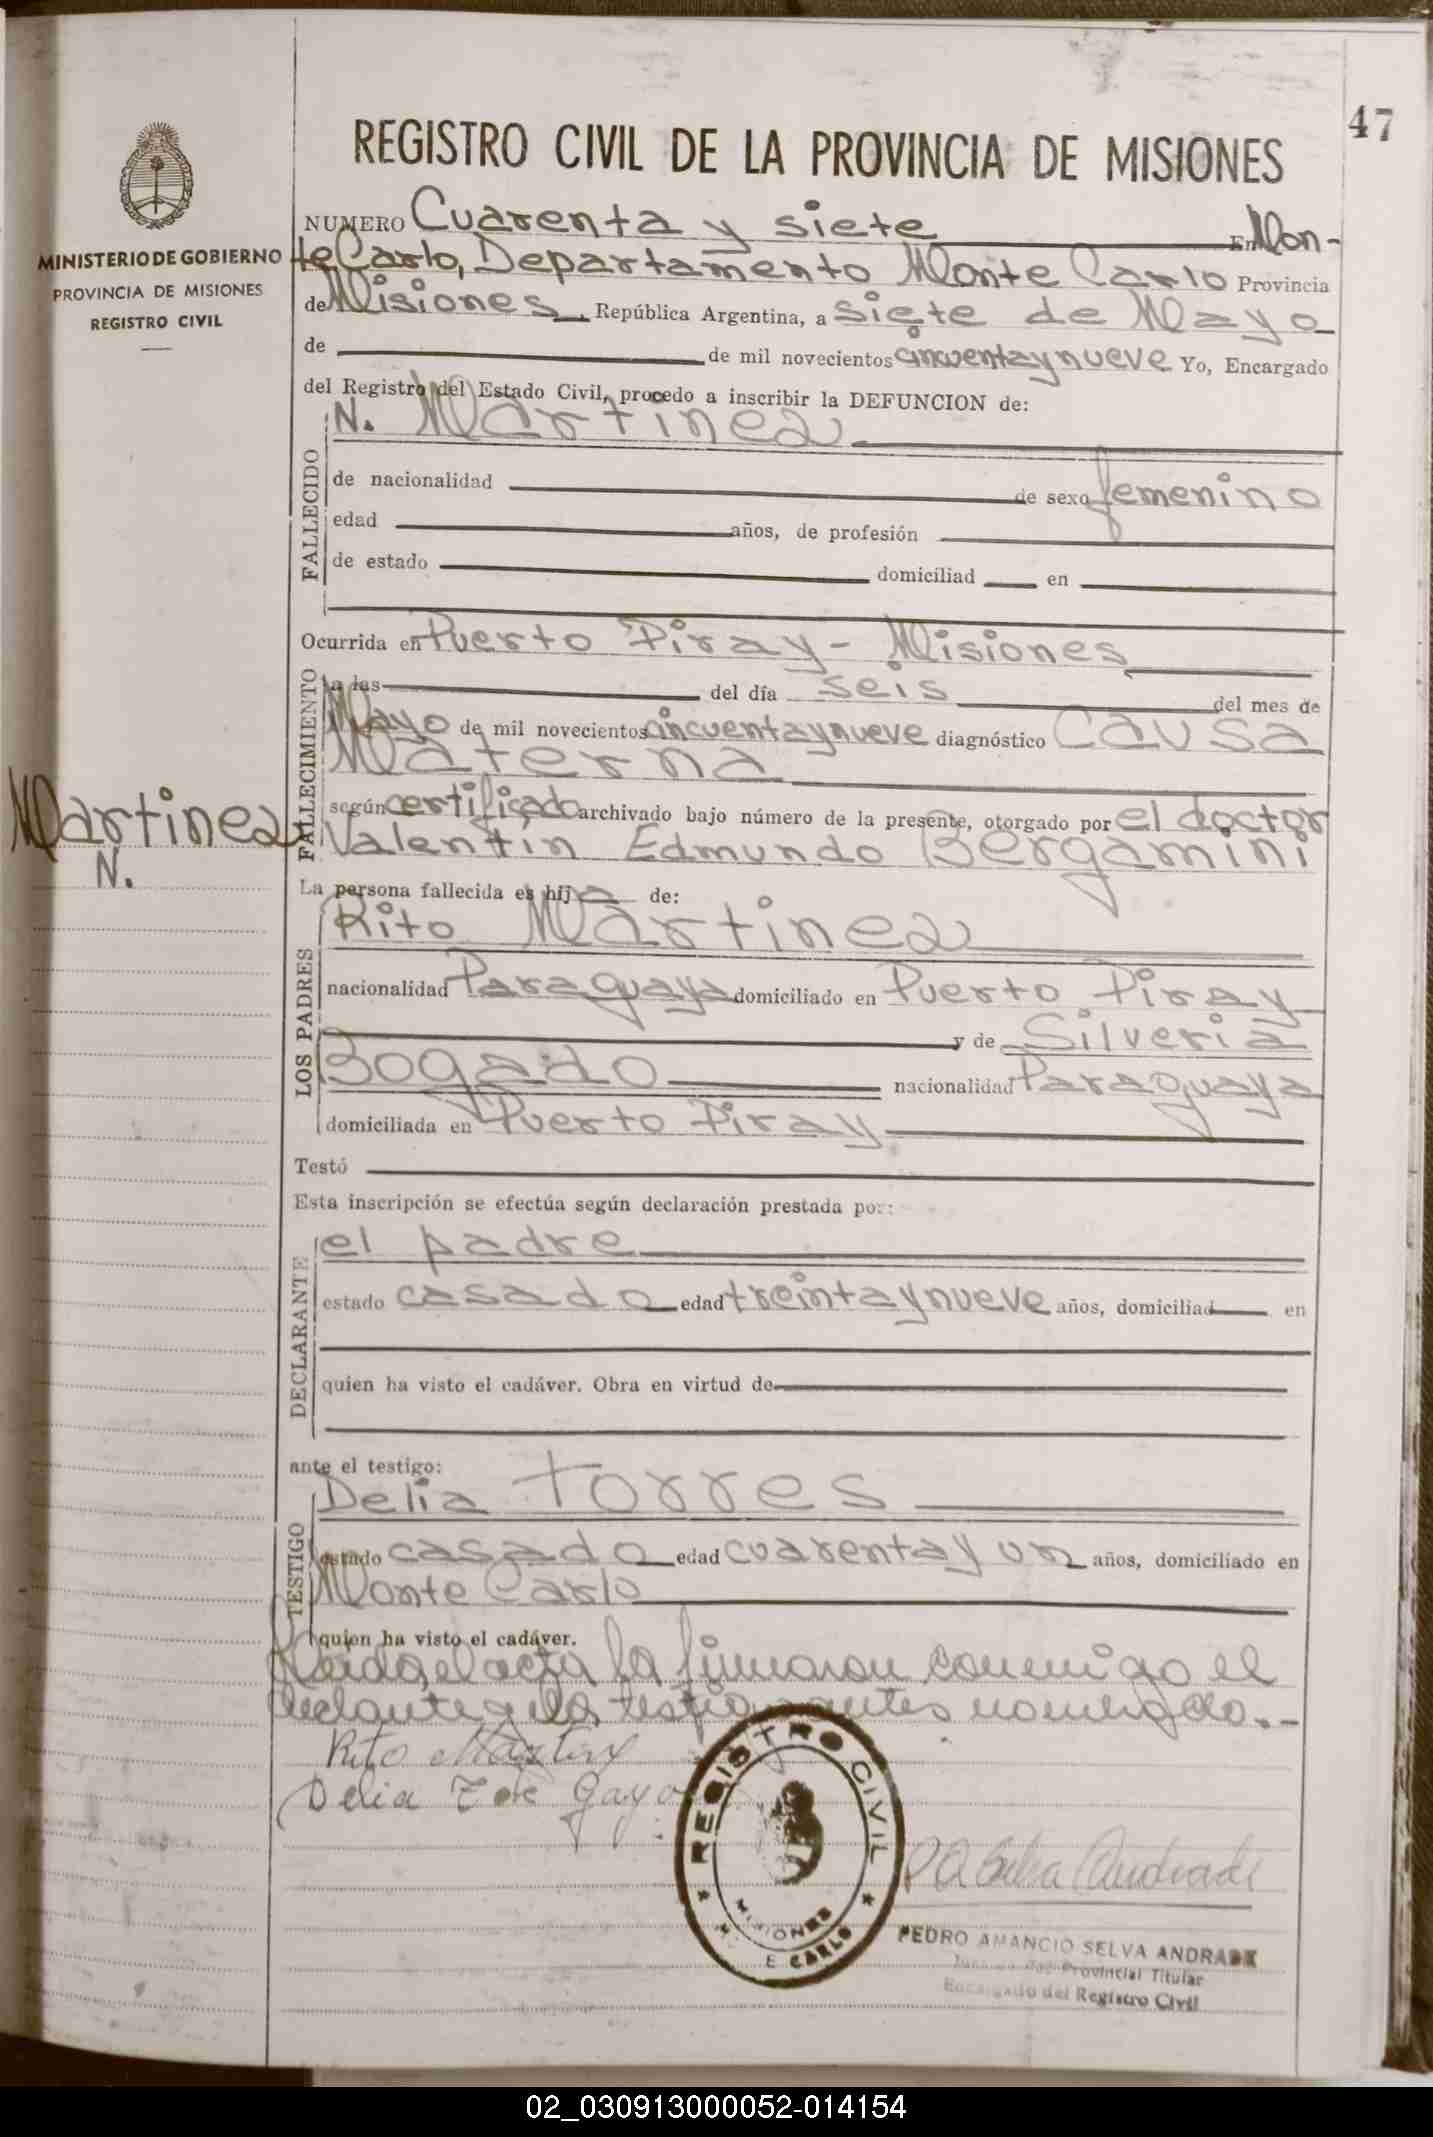 47
REGISTRO CIVIL DE LA PROVINCIA DE MISIONES
MINISTERIO DE GOBIERNO
PROVINCIA DE MISIONES
REGISTRO CIVIL
NUMERO Cuarenta y siete En Mon-
te Carlo, Departamento Monte Carlo Provincia
de Misiones, República Argentina, a siete de Mayo
de de mil novecientos cincuentaynueve Yo, Encargado
del Registro del Estado Civil, procedo a inscribir la DEFUNCION de:
FALLECIDO
N. Martinez
de nacionalidad de sexo femenino
edad años, de profesión
de estado domiciliad en
Ocurrida en Puerto Piray - Misiones
FALLECIMIENTO
a las del día seis del mes de
Mayo de mil novecientos cincuentaynueve diagnóstico Causa
Materna
según certificado archivado bajo número de la presente, otorgado por el doctor
Valentín Edmundo Bergamini
Martinez
N.
La persona fallecida es hij a de:
LOS PADRES
Rito Martinez
nacionalidad Paraguaya domiciliado en Puerto Piray
y de Silveria
Bogado nacionalidad Paraguaya
domiciliada en Puerto Piray
Testó
Esta inscripción se efectúa según declaración prestada por:
DECLARANTE
el padre
estado casado edad treintaynueve años, domiciliad en
quien ha visto el cadáver. Obra en virtud de
ante el testigo:
TESTIGO
Delia Torres
estado casado edad cuarentay un años, domiciliado en
Monte Carlo
quien ha visto el cadáver.
Leida el acta la firmaron conmigo el
declante y la testigo antes nombrado.-
Rito Martinz
Delia T de Gayo
REGISTRO CIVIL
MISIONES
E CARLO
P A Selva Andrade
PEDRO AMANCIO SELVA ANDRADE
Provincial Titular
Encargado del Registro Civil
02_030913000052-014154